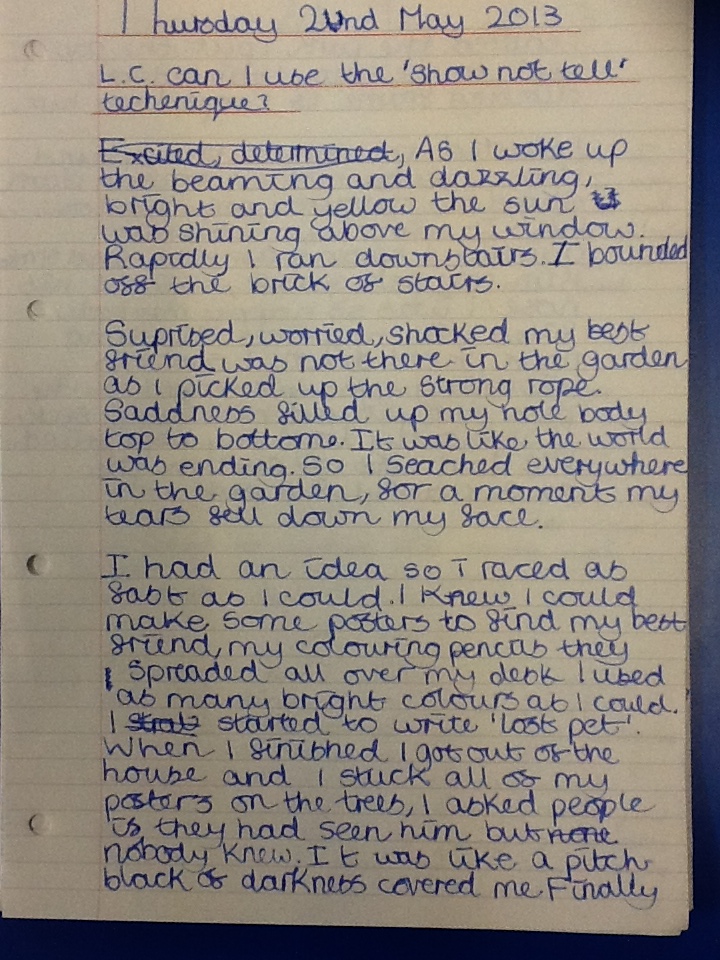 Thursday 22nd May 2013
L.C. can I use the 'show not tell'
techenique?
Excited, determined, As I woke up
the beaming and dazzling,
bright and yellow the sun
was shining above my window.
Rapidly I ran downstairs. I bounded
off the brick of stairs.
Suprised, worried, shocked my best
friend was not there in the garden
as I picked up the strong rope.
Saddness filled up my hole body
top to bottome. It was like the world
was ending. So I seached everywhere
in the garden, for a moment my
tears fell down my face.
I had an idea so I raced as
fast as I could. I knew I could
make some posters to find my best
friend, my colouring pencils they
spreaded all over my desk I used
as many bright colours as I could.
I started to write 'lost pet'.
When I finished I got out of the
house and I stuck all of my
posters on the trees, I asked people
if they had seen him but none
nobody knew. It was like a pitch
black of darkness covered me. Finally